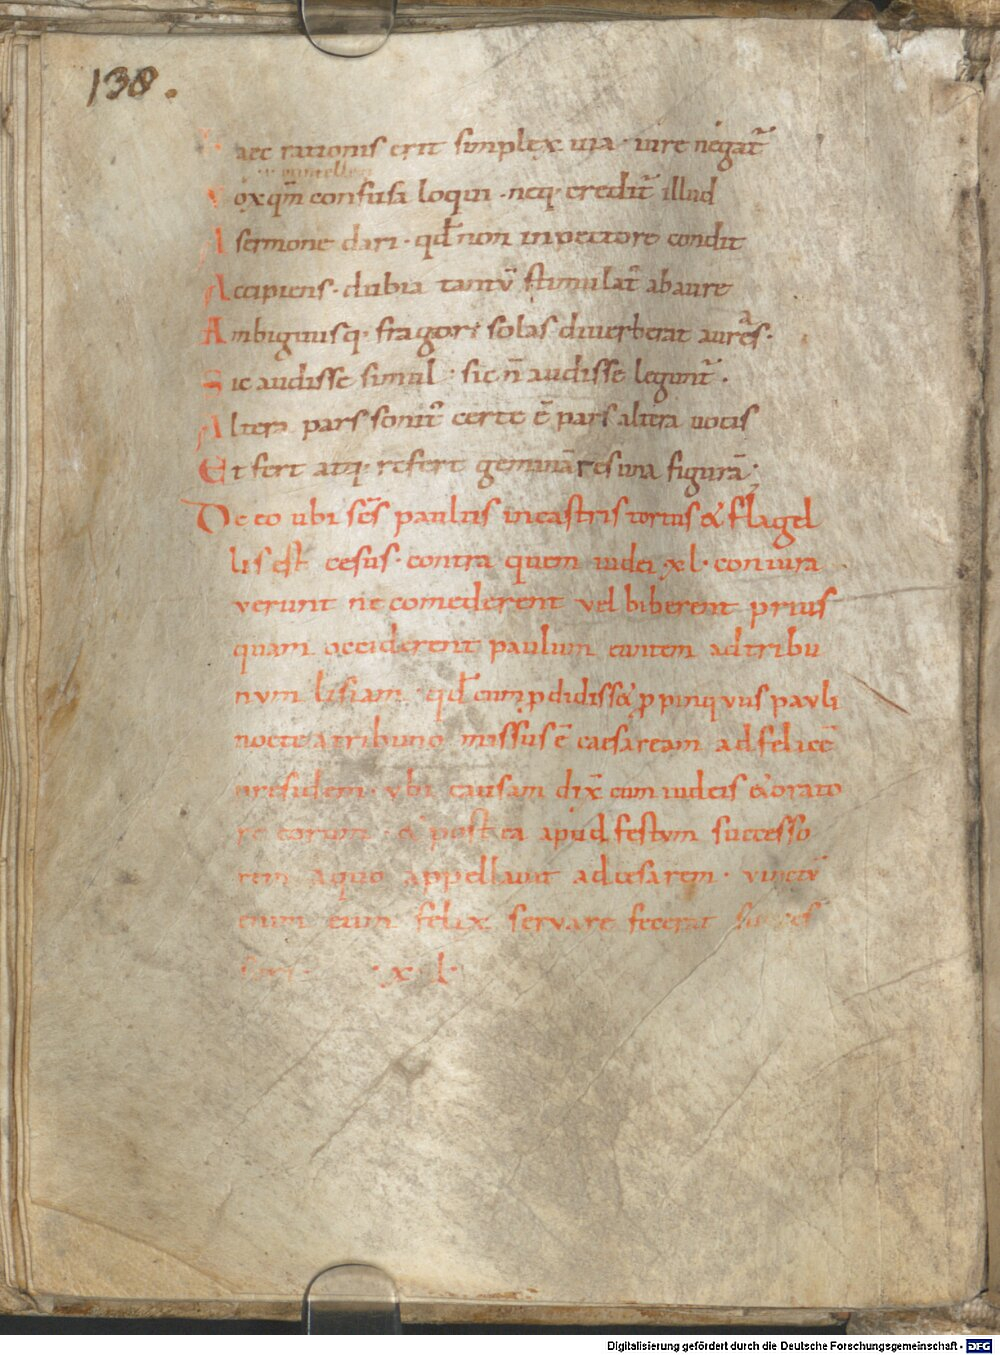 138.
Haec rationis erit simplex uia · iure negat̄
Vox qm̄ confusa loqui · neq; credit̄ illud
A sermone dari · qđ non in pectore condit
Accipiens · dubia tantū stimulat̄ ab aure
Ambiguusq; fragor solas diuerberat aures ·
Sic audisse simul · sic n̄ audisse legunt̄ ·
Altera pars sonit᷒ certe ē pars altera uocis
Et fert atq; refert geminā res una figurā ;
De eo ubi sc̄s paulus in castris tortus & flagel
lis est cesus · contra quem iudei xl · coniura
verunt ne comederent vel biberent prius
quam occiderent paulum euntem ad tribu
nvm lisiam · qđ cum ꝓdidiss& ꝓpinqvus pavli
nocte a tribuno missus ē caesaream ad felicē
presidem · vbi causam dix̄ cum iudeis & orato
re eorum · & postea apud festvm successo
rem a quo appellauit ad cesarem · vinctū
enim eum felix servare fecerat succes
sori · xl ·
Digitalisierung gefördert durch die Deutsche Forschungsgemeinschaft - DFG